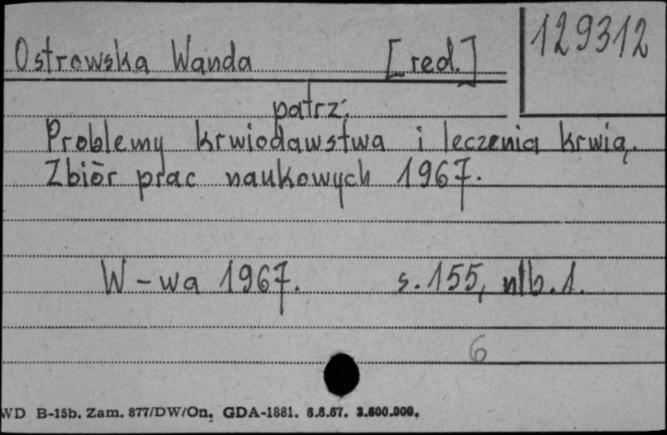 129312
Ostrowska Wanda [red.]
patrz:
Problemy krwiodawstwa i leczenia krwią.
Zbiór prac naukowych 1967.
W-wa 1967. s. 155, nlb. 1.
6
WD B-15b. Zam. 877/DW/On. GDA-1881. 6.6.67. 3.600.000.